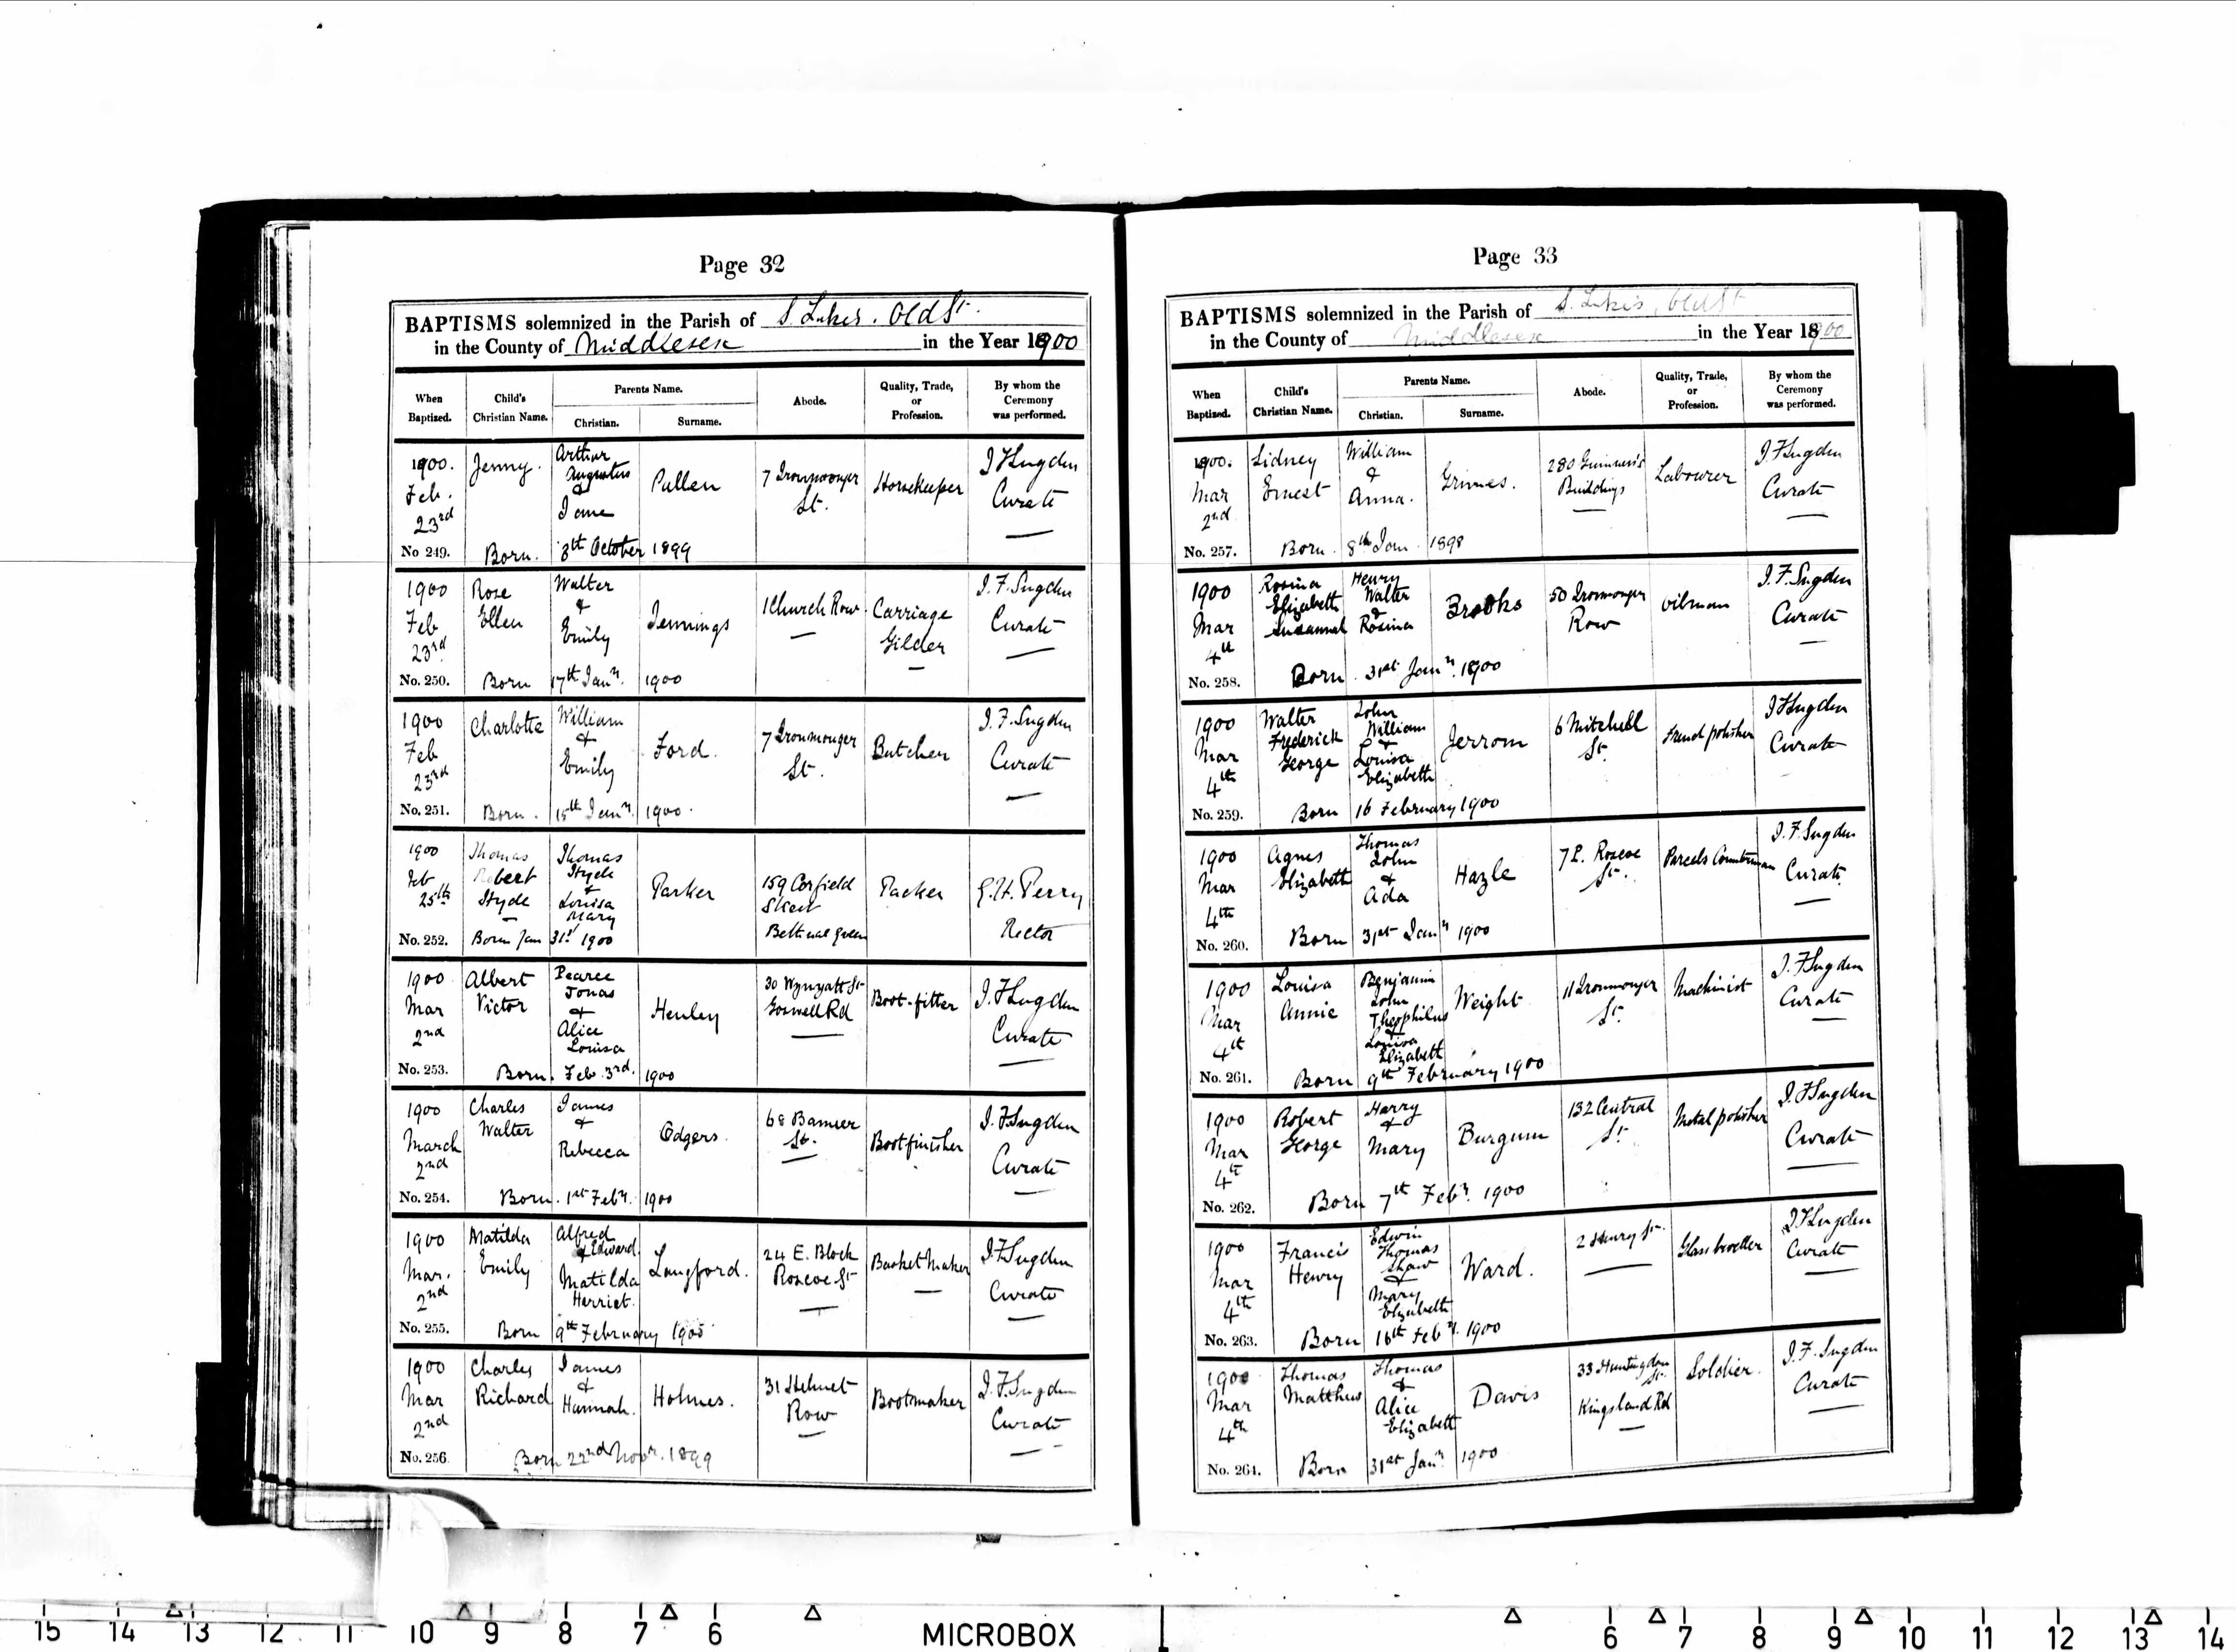 Page 32
BAPTISMS solemnized in the Parish of S. Lukes. Old St.
in the County of Middlesex in the Year 1900
When Baptized. Child's Christian Name. Parents Name. Christian. Surname. Abode. Quality, Trade, or Profession. By whom the Ceremony was performed.
1900. Feb. 23rd Jenny. Arthur Augustus & Jane Pullen 7 Ironmonger St. Horsekeeper I F Sugden Curate
No 249. Born. 8th October 1899
1900 Feb 23rd Rose Ellen Walter & Emily Jennings 1 Church Row. Carriage Gilder I. F. Sugden Curate
No. 250. Born 17th Jany. 1900
1900 Feb 23rd Charlotte William & Emily Ford. 7 Ironmonger St. Butcher I. F. Sugden Curate
No. 251. Born. 15th Jany. 1900.
1900 Feb 25th Thomas Robert Hyde Thomas Hyde & Louisa Mary Parker 159 Corfield Street Bethnal Green Packer G. H. Perry Rector
No. 252. Born Jan 31st 1900
1900 Mar 2nd Albert Victor Pearce Jonas & Alice Louisa Henley 30 Wynyatt St Goswell Rd Boot-fitter I. F Sugden Curate
No. 253. Born. Feb. 3rd. 1900
1900 March 2nd Charles Walter James & Rebecca Odgers. 68 Banner St. Boot finisher I. F. Sugden Curate
No. 254. Born. 1st Feby. 1900
1900 Mar. 2nd Matilda Emily Alfred & Edward Matilda Harriet. Langford. 24 E. Block Roscoe St Basket Maker I. F Sugden Curate
No. 255. Born 9th February 1900
1900 Mar 2nd Charles Richard James & Hannah. Holmes. 31 Helmet Row Bootmaker I. F. Sugden Curate
No. 256. Born 22nd Novr. 1899
Page 33
BAPTISMS solemnized in the Parish of S. Luke's, Old St
in the County of Middlesex in the Year 1900
When Baptized. Child's Christian Name. Parents Name. Christian. Surname. Abode. Quality, Trade, or Profession. By whom the Ceremony was performed.
1900. Mar 2nd Sidney Ernest William & Anna. Grimes. 280 Guinness's Buildings Labourer I. F Sugden Curate
No. 257. Born. 8th Jan. 1898
1900 Mar 4th Rosina Elizabeth Susannah Henry Walter & Rosina Brooks 50 Ironmonger Row oilman I. F. Sugden Curate
No. 258. Born. 31st Jany. 1900
1900 Mar 4th Walter Frederick George John William & Louisa Elizabeth Jerrom 6 Mitchell St. French polisher I F Sugden Curate
No. 259. Born 16 February 1900
1900 Mar 4th Agnes Elizabeth Thomas John & Ada Hazle 7 Roscoe St. Parcels Counterman I. F. Sugden Curate
No. 260. Born 31st Jany 1900
1900 Mar 4th Louisa Annie Benjamin John Theophilus & Louisa Elizabeth Weight 11 Ironmonger St. Machinist I. F Sugden Curate
No. 261. Born 9th February 1900
1900 Mar 4th Robert George Harry & Mary Burgum 132 Central St Metal polisher I. F Sugden Curate
No. 262. Born 7th Feby. 1900
1900 Mar 4th Francis Henry Edwin Thomas Shaw & Mary Elizabeth Ward. 2 Henry St. Glass beveller I. F Sugden Curate
No. 263. Born 16th Feby. 1900
1900 Mar 4th Thomas Matthew Thomas & Alice Elizabeth Davis 33 Huntingdon St. Kingsland Rd Soldier. I. F. Sugden Curate
No. 264. Born 31st Jany. 1900
15 14 13 12 11 10 9 8 7 6 MICROBOX 6 7 8 9 10 11 12 13 14